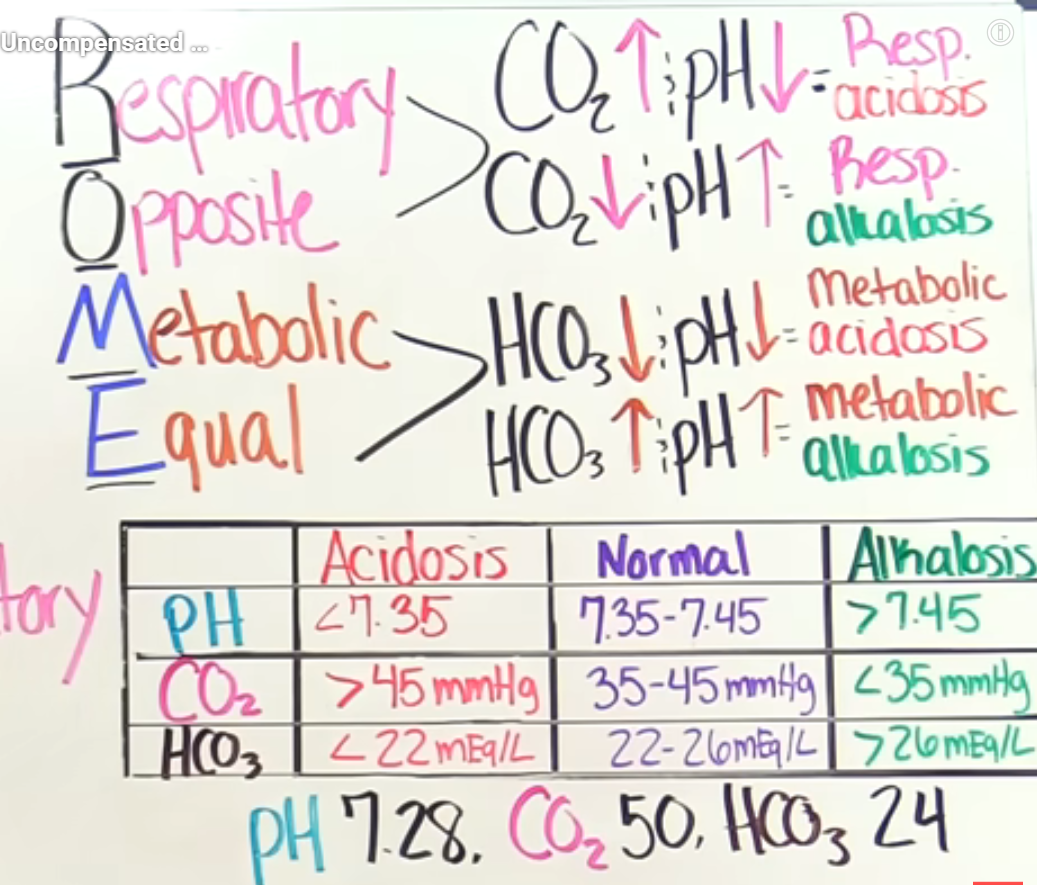 Uncompensated ...
Respiratory
CO₂ ↑ ; pH ↓ = Resp. acidosis
Opposite
CO₂ ↓ ; pH ↑ = Resp. alkalosis
Metabolic
HCO₃ ↓ ; pH ↓ = Metabolic acidosis
Equal
HCO₃ ↑ ; pH ↑ = metabolic alkalosis
tory
Acidosis Normal Alkalosis
PH <7.35 7.35-7.45 >7.45
CO₂ >45 mmHg 35-45 mmHg <35 mmHg
HCO₃ <22 mEq/L 22-26 mEq/L >26 mEq/L
pH 7.28, CO₂ 50, HCO₃ 24